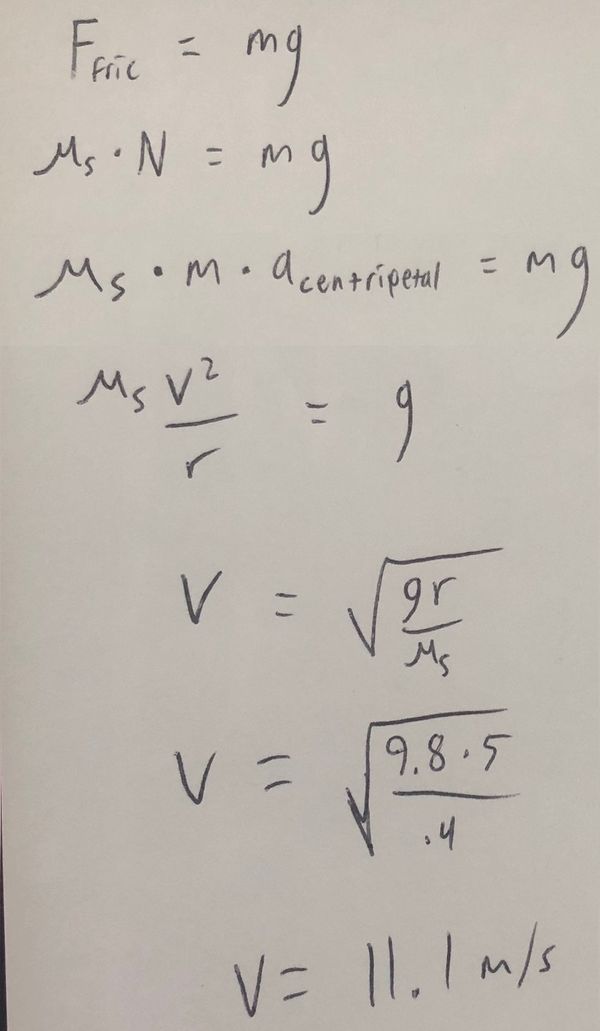 F_fric = mg
μ_s · N = mg
μ_s · m · a_centripetal = mg
μ_s v²/r = g
v = √(gr/μ_s)
v = √(9.8 · 5/.4)
v = 11.1 m/s